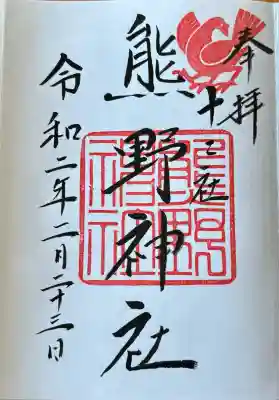 奉拝
十二社
熊野神社
令和二年二月二十三日
熊野神社